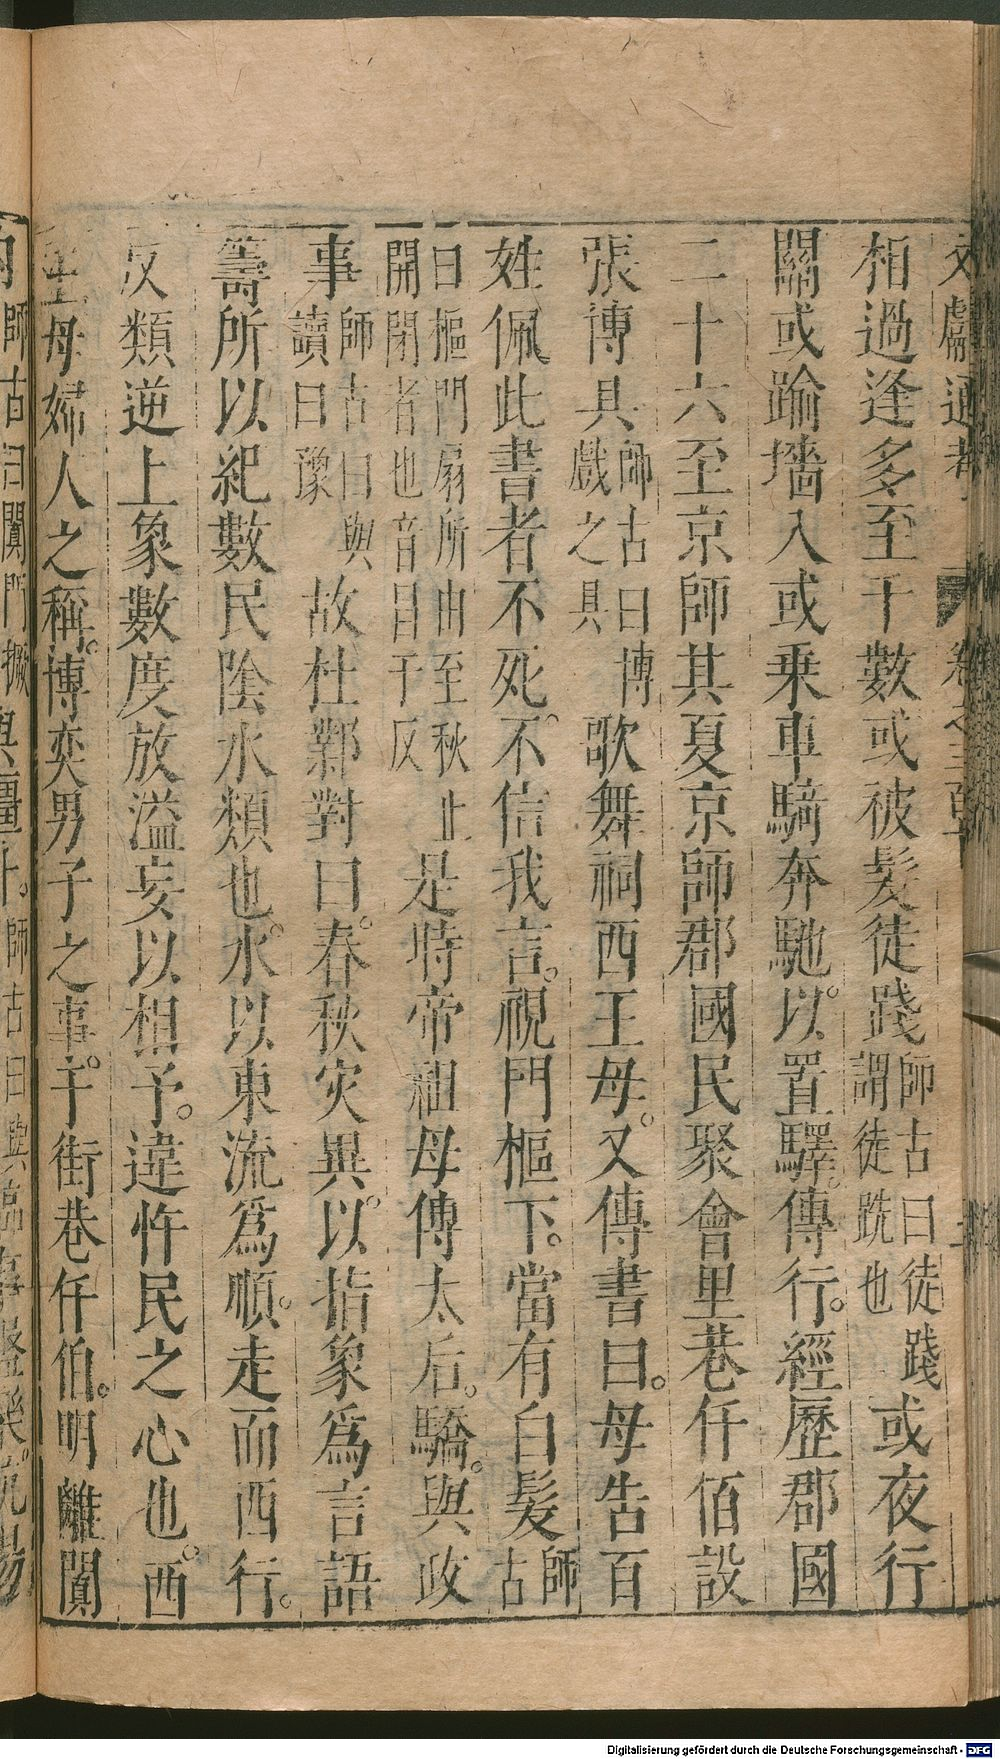 文獻通考 卷之三百
相過逢多至千數或被髮徒踐師古曰徒踐謂徒跣也或夜行
關或踰墻入或乘車騎奔馳以置驛傳行經歷郡國
二十六至京師其夏京師郡國民聚會里巷仟佰設
張博具師古曰博戲之具歌舞祠西王母又傳書曰母告百
姓佩此書者不死不信我言視門樞下當有白髮師古
曰樞門扇所由開閉者也音昌于反至秋止是時帝祖母傅太后驕與政
事師古曰與讀曰豫故杜鄴對曰春秋灾異以指象爲言語
籌所以紀數民陰水類也水以東流爲順走而西行
反類逆上象數度放溢妄以相予違忤民之心也西
王母婦人之稱博奕男子之事于街巷仟伯明離闑
內師古曰闑門橛與疆外師古曰與
Digitalisierung gefördert durch die Deutsche Forschungsgemeinschaft - DFG